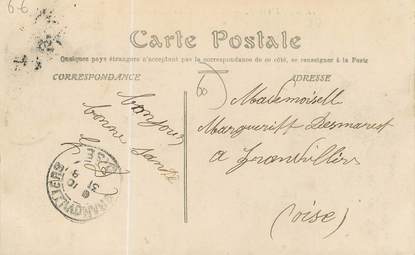 6-6
Carte Postale
Quelques pays étrangers n'acceptant pas la correspondance de ce côté, se renseigner à la Poste
CORRESPONDANCE
ADRESSE
bonjour
bonne santé
Mademoisell
Margueritt Desmarest
a
(oise)
OISE
31